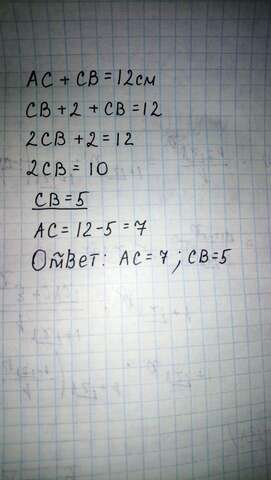 AC + CB = 12см
CB + 2 + CB = 12
2CB + 2 = 12
2CB = 10
CB = 5
AC = 12 - 5 = 7
Ответ: AC = 7 ; CB = 5